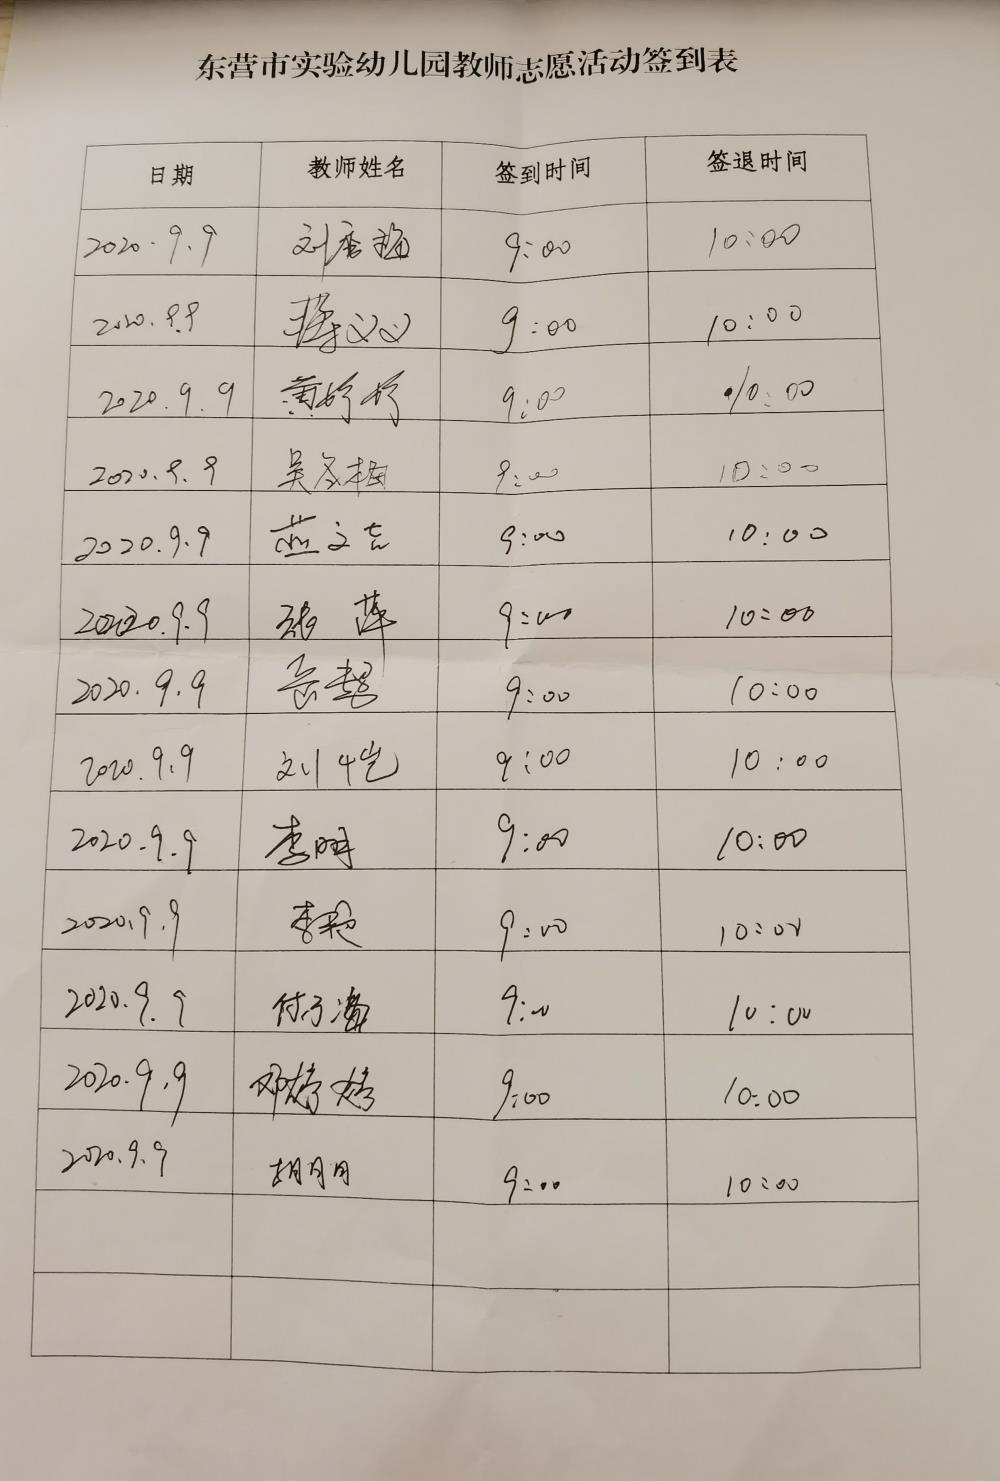 东营市实验幼儿园教师志愿活动签到表
日期 教师姓名 签到时间 签退时间
2020.9.9 刘春梅 9:00 10:00
2020.9.9 9:00 10:00
2020.9.9 黄婷婷 9:00 10:00
2020.9.9 吴冬梅 9:00 10:00
2020.9.9 燕文吉 9:00 10:00
2020.9.9 张萍 9:00 10:00
2020.9.9 9:00 10:00
2020.9.9 刘 9:00 10:00
2020.9.9 李明 9:00 10:00
2020.9.9 李艳 9:00 10:00
2020.9.9 付子潇 9:00 10:00
2020.9.9 邓婷婷 9:00 10:00
2020.9.9 胡月月 9:00 10:00